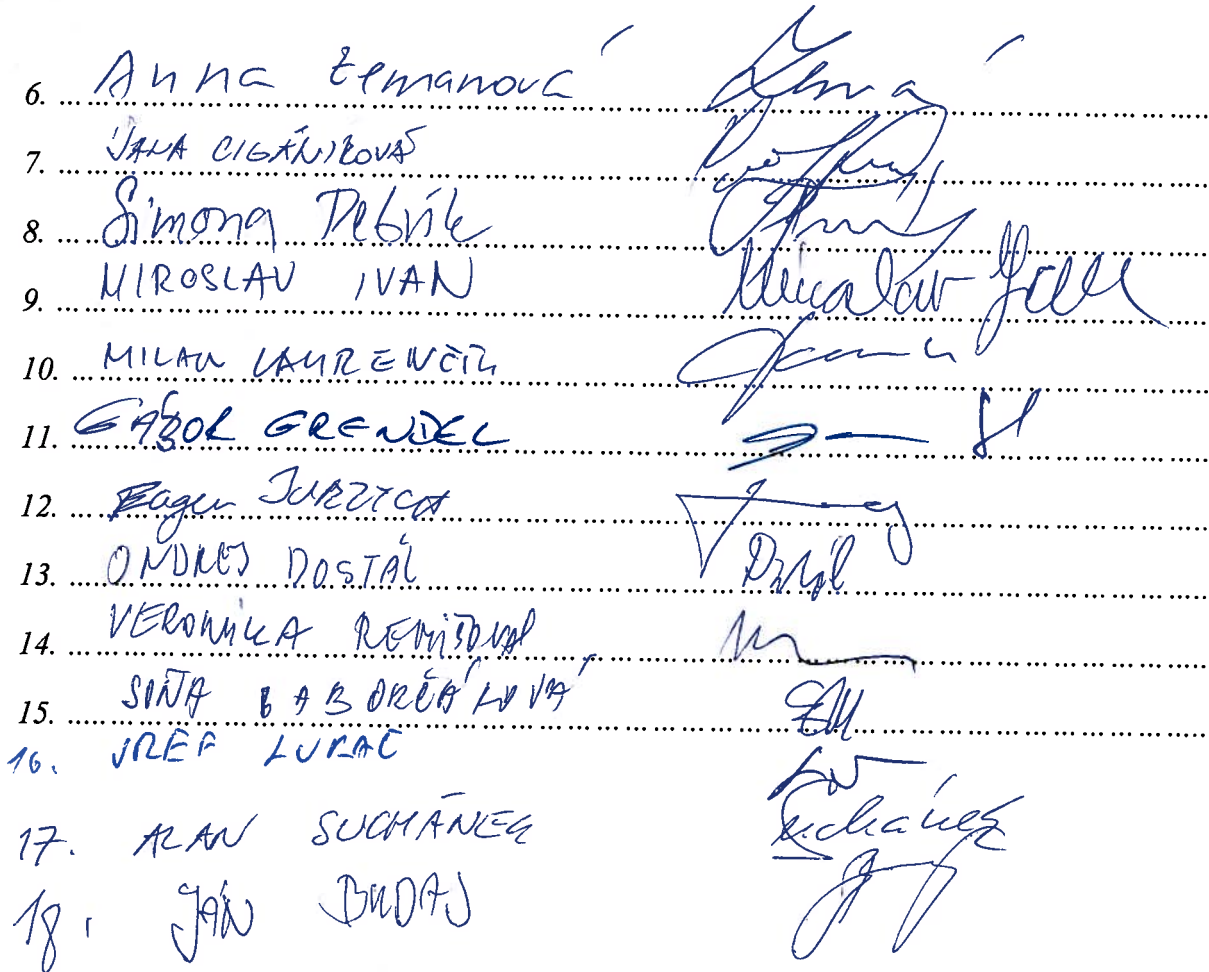 6. Anna Zemanová
7. JANA CIGÁNIKOVÁ
8. Simona Petrík
9. MIROSLAV IVAN Miroslav Ivan
10. MILAN LAURENČÍK
11. GÁBOR GRENDEL
12. Eugen JURZYCA
13. ONDREJ DOSTÁL
14. VERONIKA REMIŠOVÁ
15. SOŇA GABORČÁKOVÁ
16. JOZEF LUKÁČ
17. ALAN SUCHÁNEK Suchánek
18. JÁN BUDAJ